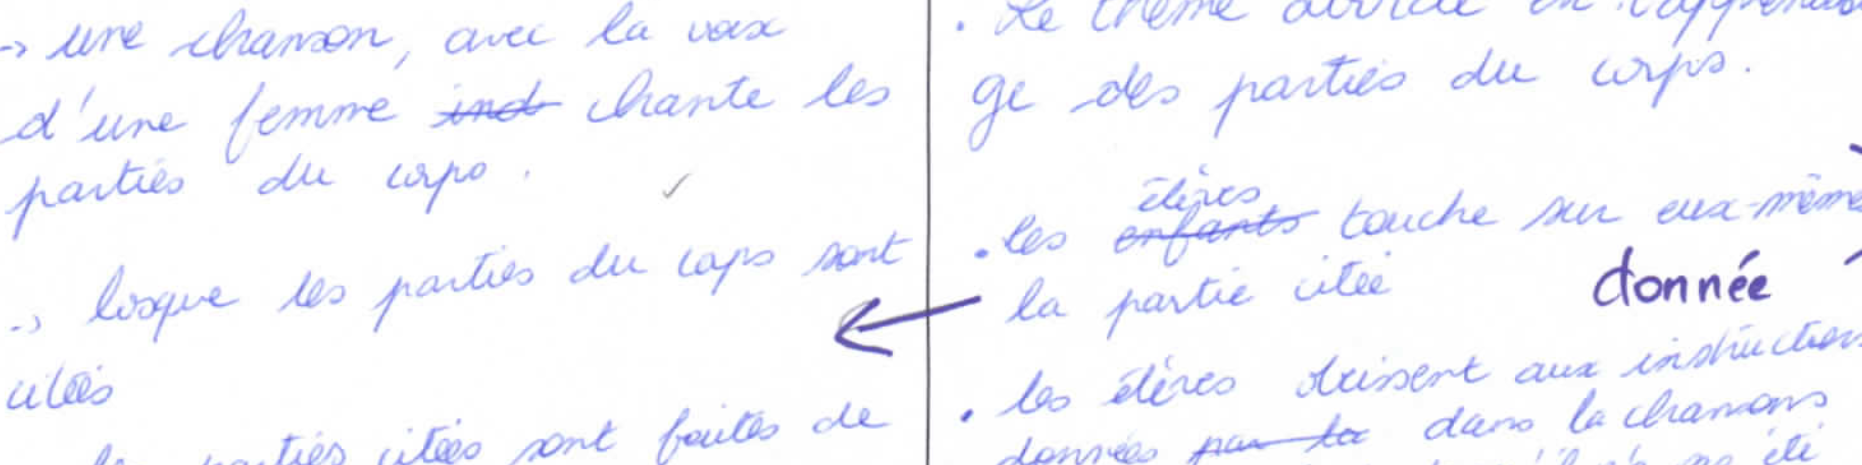 -> une chanson, avec la voix
d'une femme ind chante les
parties du corps.
-> losque les parties du corps sont
citées
les parties citées sont faites de
. Le thème abordé
ge des parties du corps.
élèves
. les enfants touche sur eux-même
la partie citée
donnée
. les élèves obeissent aux instruction
données par la dans la chansons
été